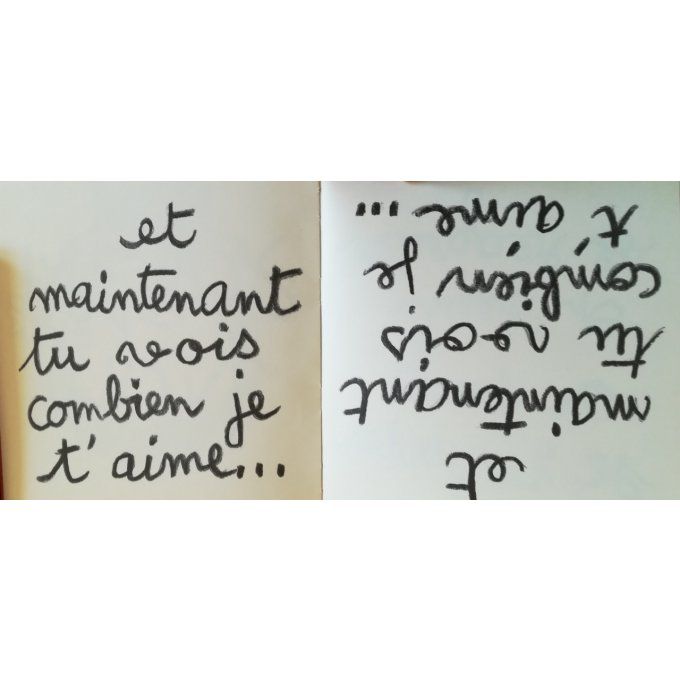 et
maintenant
tu vois
combien je
t'aime...
et
maintenant
tu vois
combien je
t'aime...